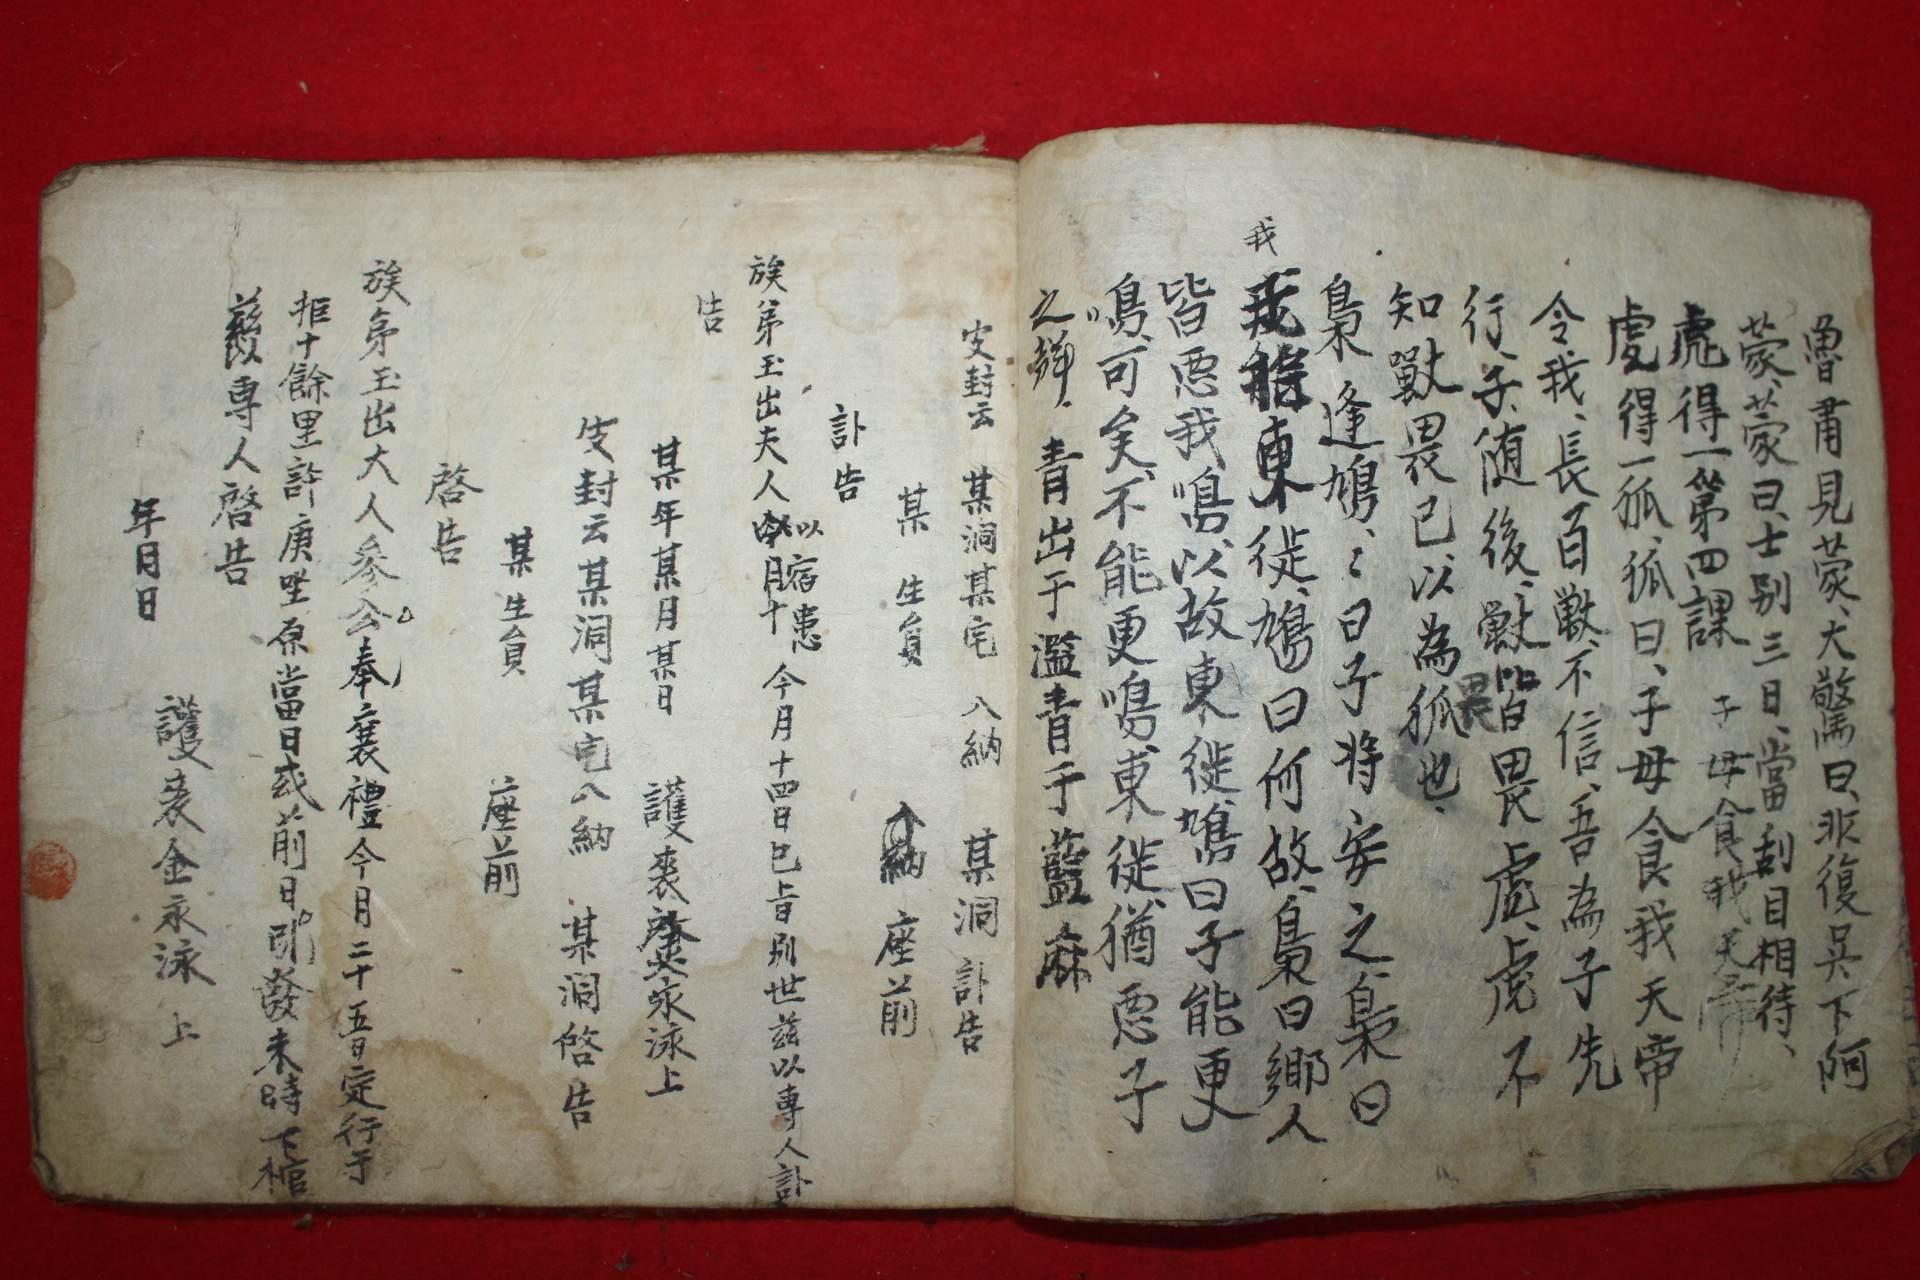 魯肅見蒙、大驚曰、非復吳下阿
蒙、蒙曰、士別三日、當刮目相待、
虎得一第四課 子母食我天帝
虎得一狐、狐曰、子母食我天帝
令我、長百獸、不信、吾為子先
行、子、随後、獸皆畏虎、虎不
畏
知獸畏己、以為狐也、
梟逢鳩、鳩曰子將安之、梟曰
我
東徙、鳩曰何故、梟曰鄉人
皆惡我鳴、以故東徙、鳩曰子能更
鳴、可矣、不能更鳴東徙、猶惡子
之 青出于濫青于藍麻
皮封云 某洞某宅 入納 某洞訃告
某 生員 納 座前
訃告
族弟玉出夫人 以宿患 今月十四日巳時別世玆以專人訃
告
某年某月某日 護喪 永泳上
皮封云某洞某宅入納 某洞啓告
某 生員 座前
啓告
族弟玉出大人參公奉襄禮今月二十五日定行于
拒十餘里許庚坐原當日或前日 發未時下棺
玆以專人啓告
年月日
護喪金永泳 上